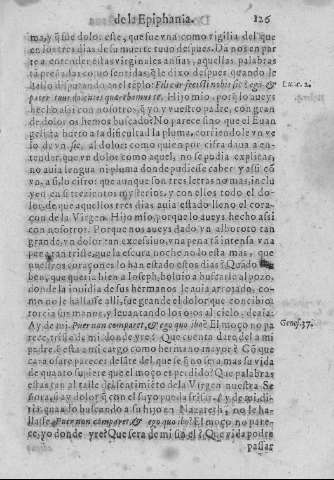 de la Epiphania. 126
ma, y q̃ fue dolor este, que fue vna como vigilia del que
en los tres dias de su muerte tuvo despues. Da nos en par
te a entender estas virginales ansias, aquellas palabras
tã preñadas como sentidas, q̃ le dixo despues quando le
hallo disputando en el tẽplo: Fili cur fecisti nobis sic? ego &
pater tuus dolẽtes quærebamus te. Hijo mio, por q̃ lo aueys
hecho assi con nosotros, q̃ yo y vuestro padre, con gran
de dolor os hemos buscado? No parece sino que el Euan
gelista hurto a la dificultad la pluma, corriendole vn ve
lo de vn sic, al dolor: como quien por cifra daua a en-
tender, que vn dolor como aquel, no se podia explicar,
no auia lengua ni pluma donde pudiesse caber y assi cõ
vn, a si, lo cifro: que aunque son tres letras no mas, incluy
yen sentimientos y misterios, y con ellos todo el do-
lor, de que aquellos tres dias auia estado lleno el cora-
çon de la Virgen. Hijo mio, porque lo aueys hecho assi
con nosotros. Porque nos aueys dado vn alboroto tan
grande, vn dolor tan excessiuo, vna pena tã intensa vna
pena tan triste, que la escura noche no lo esta mas, que
nuestros coraçones lo han estado estos dias? Quãdo Ru
ben, que queria bien a Ioseph, boluio a buscarle al pozo,
donde la inuidia de sus hermanos le auia arrojado, co-
mo no le hallasse alli, fue grande el dolor que concibio,
torcia sus manos, y leuantando los ojos al cielo, dezia:
Ay de mi. Puer non comparet, & ego quo ibo? El moço no pa
rece, triste de mi, donde yre? Que cuenta dare del a mi
padre, q̃ esta a mi cargo como hermano mayor? Cõ que
cara osare parecer delãte del, que se q̃ no sera mas su vida
de quanto supiere que el moço es perdido? Que palabras
estas tan al talle del sentimiẽto de la Virgen nuestra Se-
ñora, si ay dolor q̃ con el suyo pueda frisar. Ay de mi, di-
ria, quando buscando a su hijo en Nazareth, no le ha-
llasse. Puer non comparet & ego quo ibo? El moço no pare-
ce, yo donde yre? Que sera de mi sin el? Que vida podre
passar
Luc. c. 2.
Genes. 37.